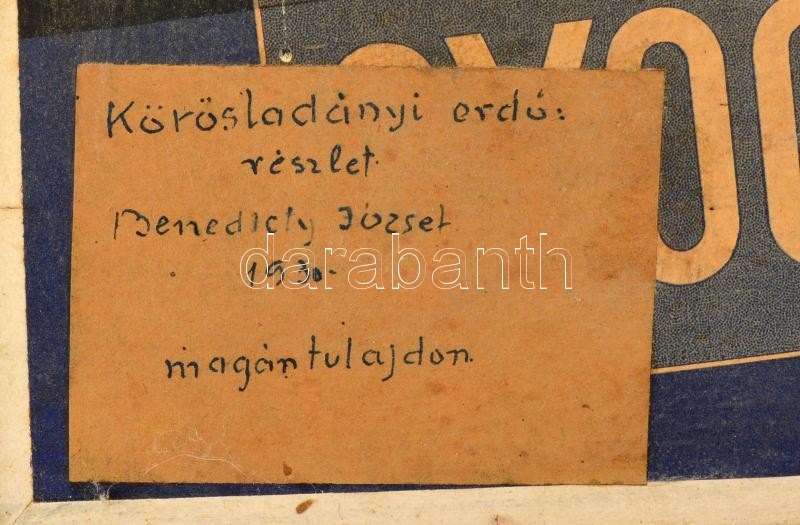 Körösladányi erdő:
részlet.
Benedicty József
1930-
magántulajdon.
darabanth